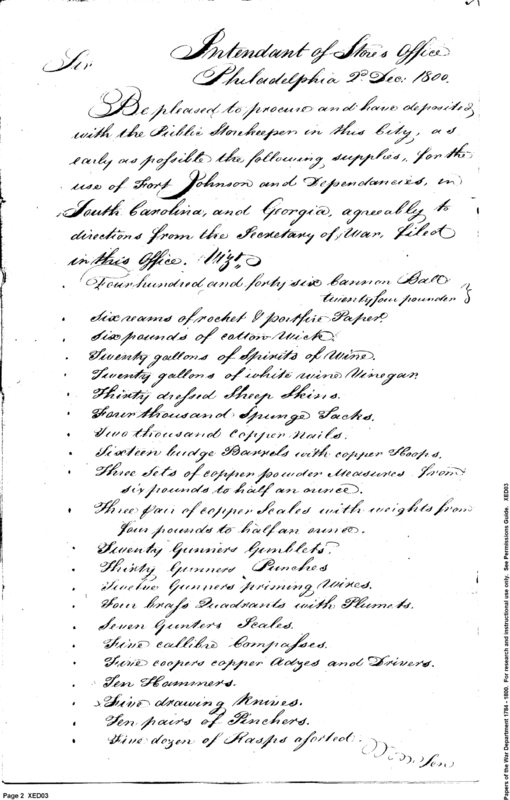 Intendant of Stores Office
Sir
Philadelphia 2d. Dec: 1800.
Be pleased to procure and have deposited
with the Public Storekeeper in this City, as
early as possible the following supplies, for the
use of Fort Johnson and Dependancies, in
South Carolina, and Georgia, agreeably to
directions from the Secretary of War, filed
in this Office. Vizt.
Four hundred and forty six Cannon Ball
twenty four pounder
Six reams of rocket & portfire Paper.
Six pounds of cotton Wick.
Twenty gallons of Spirits of Wine.
Twenty gallons of white wine Vinegar.
Thirty dressed Sheep Skins.
Four thousand Spunge Tacks.
Two thousand Copper nails.
Sixteen budge Barrels with copper Hoops.
Three Sets of copper powder Measures from
six pounds to half an ounce.
Three pair of copper Scales with weights from
four pounds to half an ounce.
Twenty Gunners Gimblets.
Thirty Gunners Punches
Twelve Gunners priming Wires.
Four brass Quadrants with Plumets.
Seven Gunters Scales.
Five callibre Compasses.
Five coopers copper Adzes and Drivers.
Ten Hammers.
Five drawing Knives.
Ten pairs of Pinchers.
Five dozen of Rasps assorted.
Ten
Page 2 XED03
Papers of the War Department 1784 - 1800. For research and instructional use only. See Permissions Guide. XED03